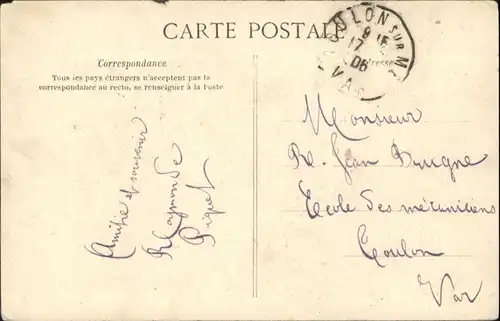 CARTE POSTALE
TOULON SUR MER
17
06
VAR
Correspondance
Tous les pays étrangers n'acceptent pas la
correspondance au recto, se renseigner à la Poste
Adresse
Monsieur
Jean
Ecole des mécaniciens
Toulon
Var
Amitié et souvenir
Raymonde
Piquet